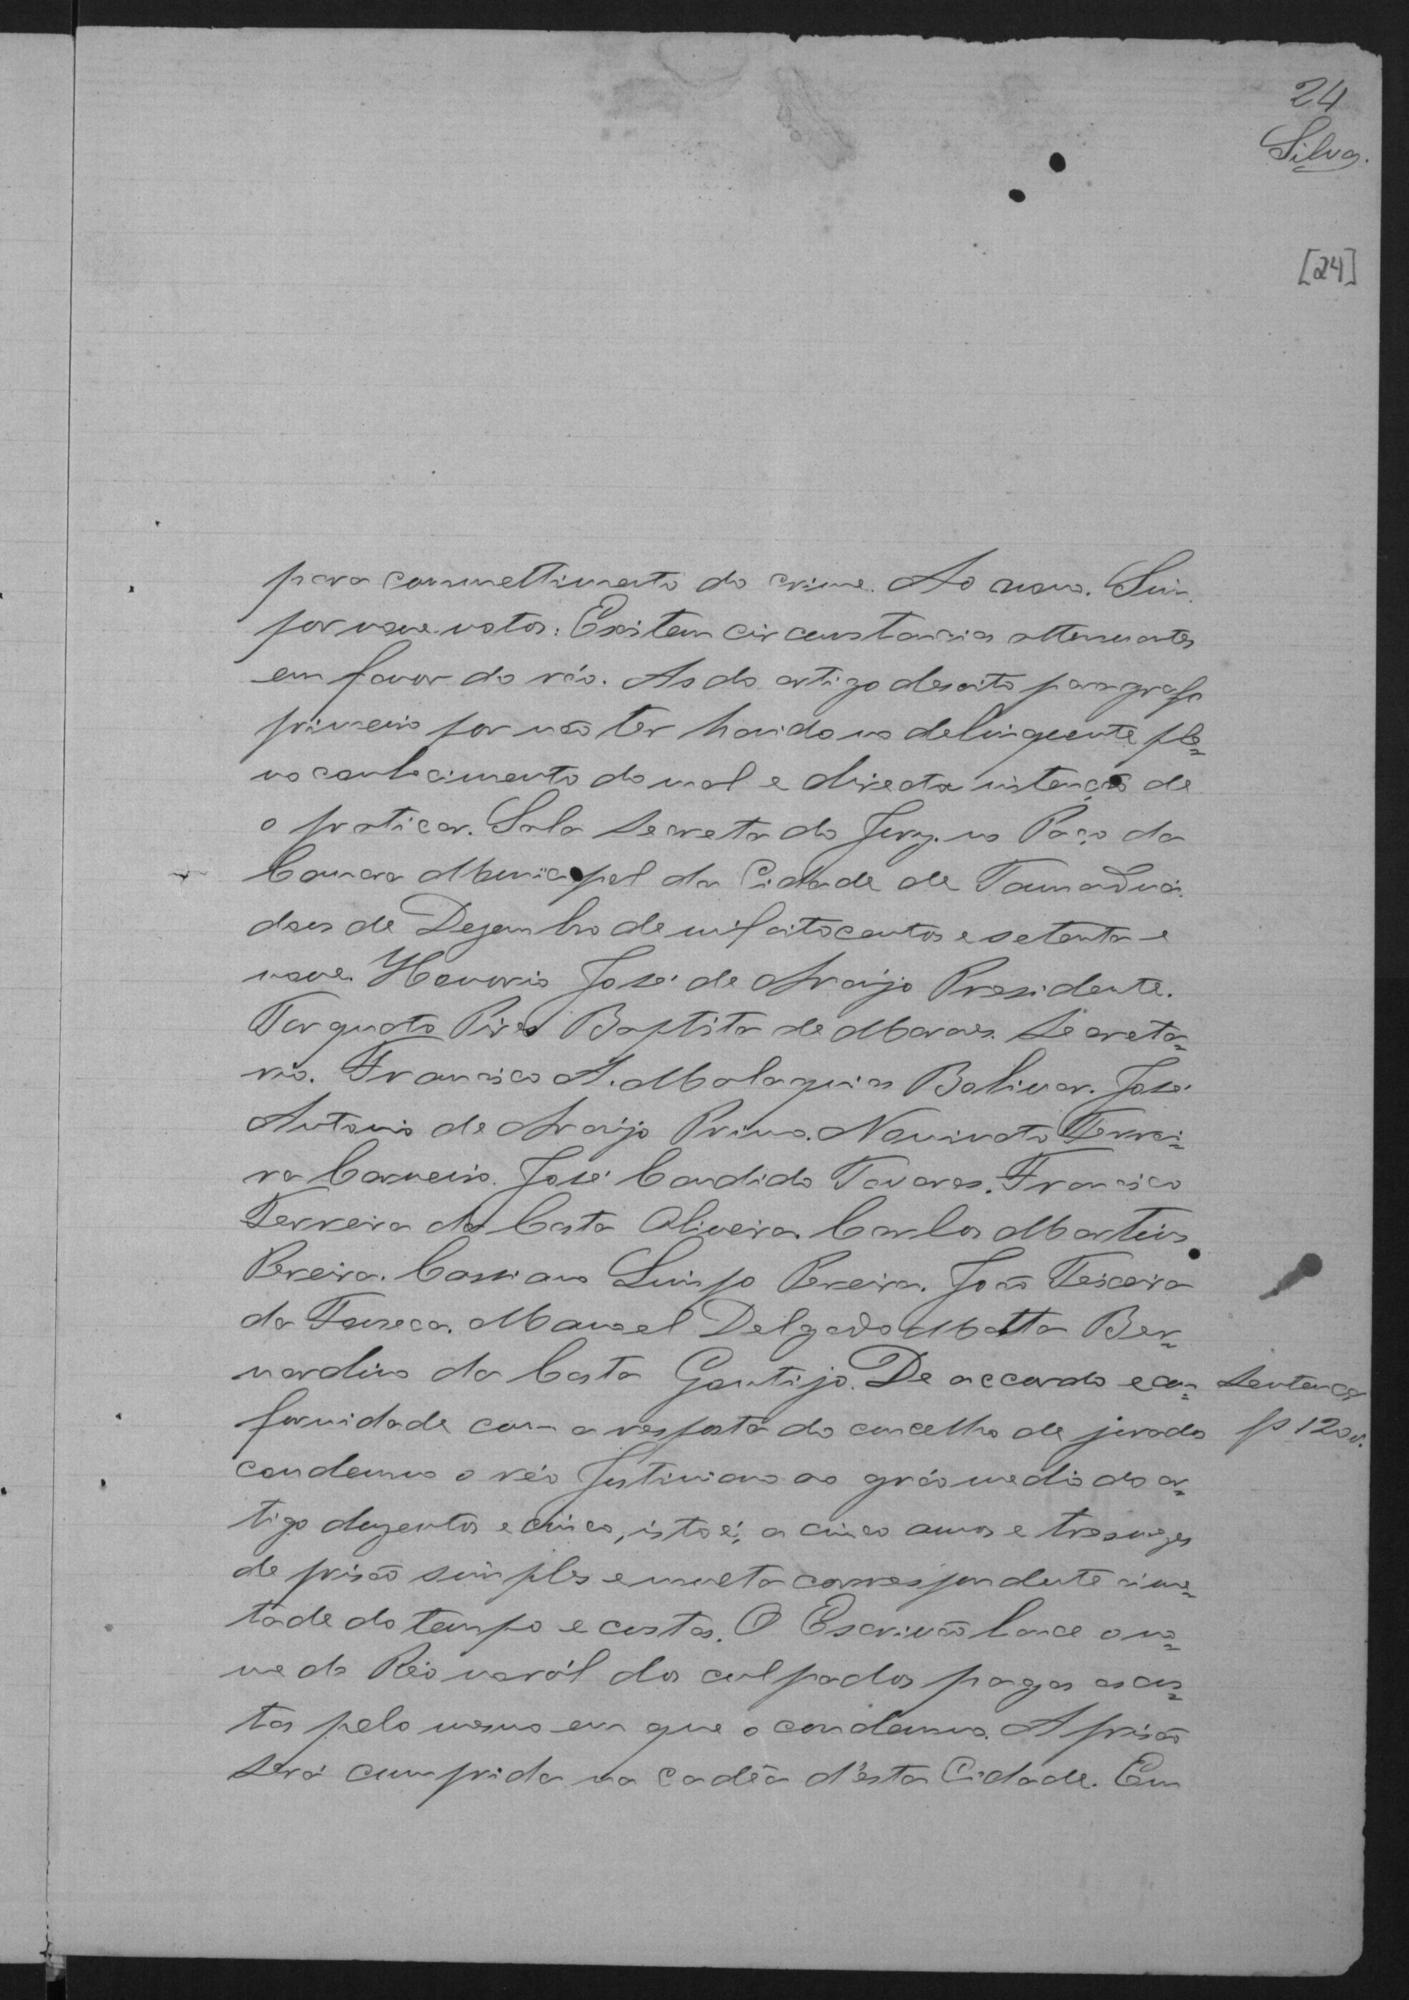 24
Silva.
[24]
para commettimento do crime. Ao nono. Sim
por nove votos: Existem circunstancias attenuantes
em favor do réo. As do artigo desoito paragrafo
primeiro por não ter havido no delinquente ple=
no conhecimento do mal e directa intenção de
o praticar. Sala secreta do Jury no Paço da
Camara Municipal da Cidade de Tamanduá
dous de Dezembro de mil oitocentos e setenta e
nove. Honorio José de Araújo Presidente.
Torquato Pires Baptista de Moraes. Secreta=
rio. Francisco A. Malaquias Bolivar. José
Antonio de Araújo Primo. Nominato Ferrei=
ra Carneiro. José Candido Tavares. Francisco
Ferreira da Costa Oliveira. Carlos Martins
Pereira. Cassiano Pereira. João Teixeira
da Fonseca. Manoel Delgado Motta Ber=
nardino da Costa Gontijo. De accordo e con=
Sentença
formidade com a resposta do concelho de jurados
fs 120 v.
condemno o réo Justiniano ao gráo medio do ar=
tigo duzentos e cinco, isto é, a cinco annos e tres mezes
de prisão simples e multa correspondente a me=
tade do tempo e custas. O Escrivão lance o no=
me do Réo no ról dos culpados pagas as cus=
tas pelo mesmo em que o condemno. A prisão
será cumprida na cadêa d'esta Cidade. Em